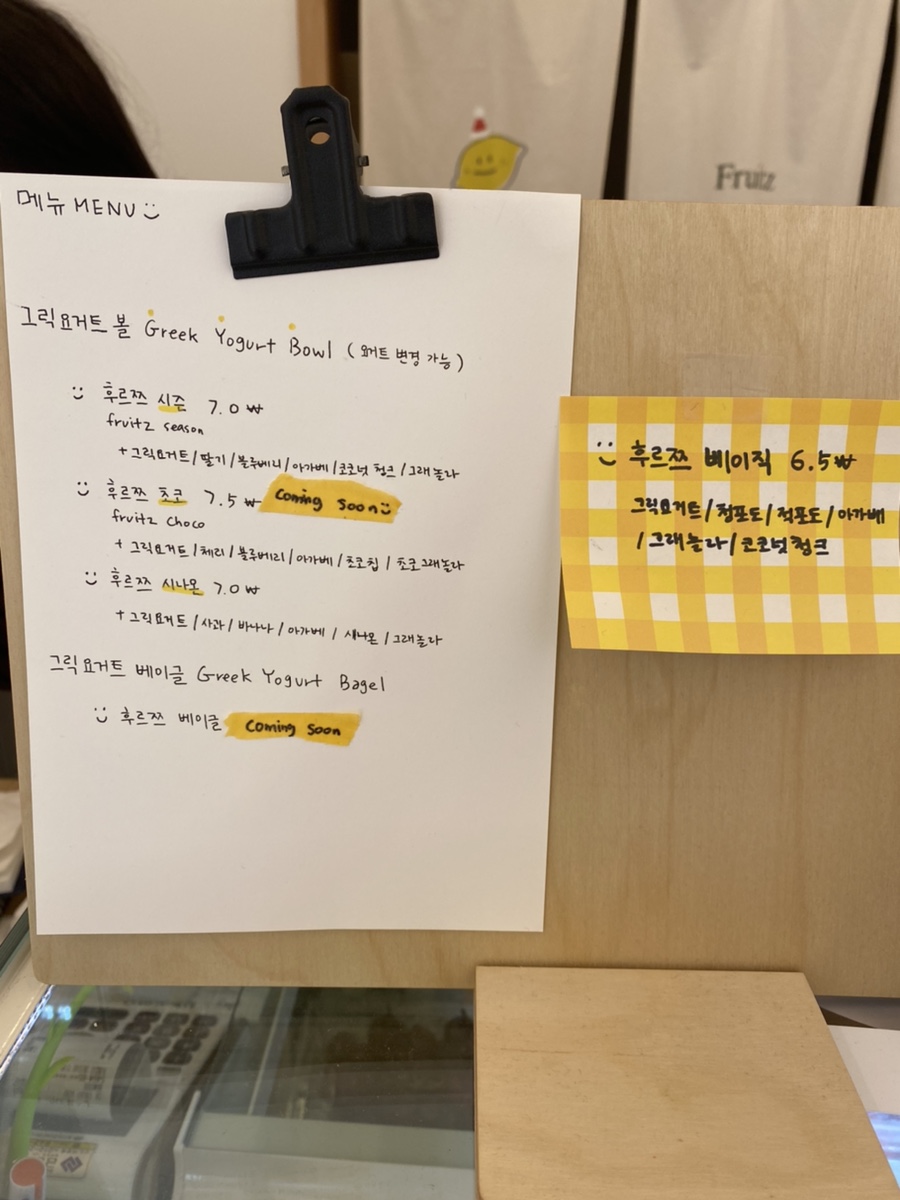 Fruitz
메뉴 MENU
그릭요거트 볼 Greek Yogurt Bowl (요거트 변경 가능)
후르쯔 시즌 7.0₩
fruitz season
+ 그릭요거트 / 딸기 / 블루베리 / 아가베 / 코코넛 청크 / 그래놀라
후르쯔 초코 7.5₩ Coming Soon
fruitz choco
+ 그릭요거트 / 체리 / 블루베리 / 아가베 / 초코칩 / 초코그래놀라
후르쯔 시나몬 7.0₩
+ 그릭요거트 / 사과 / 바나나 / 아가베 / 시나몬 / 그래놀라
그릭요거트 베이글 Greek Yogurt Bagel
후르쯔 베이글 Coming Soon
후르쯔 베이직 6.5₩
그릭요거트 / 청포도 / 적포도 / 아가베
/ 그래놀라 / 코코넛청크